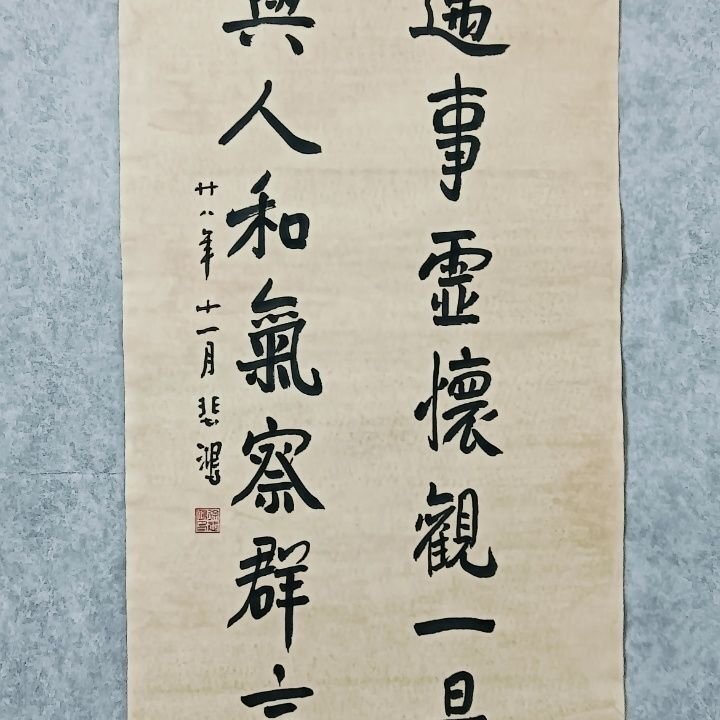 遇事虛懷觀一
與人和氣察群
廿八年十一月悲鴻